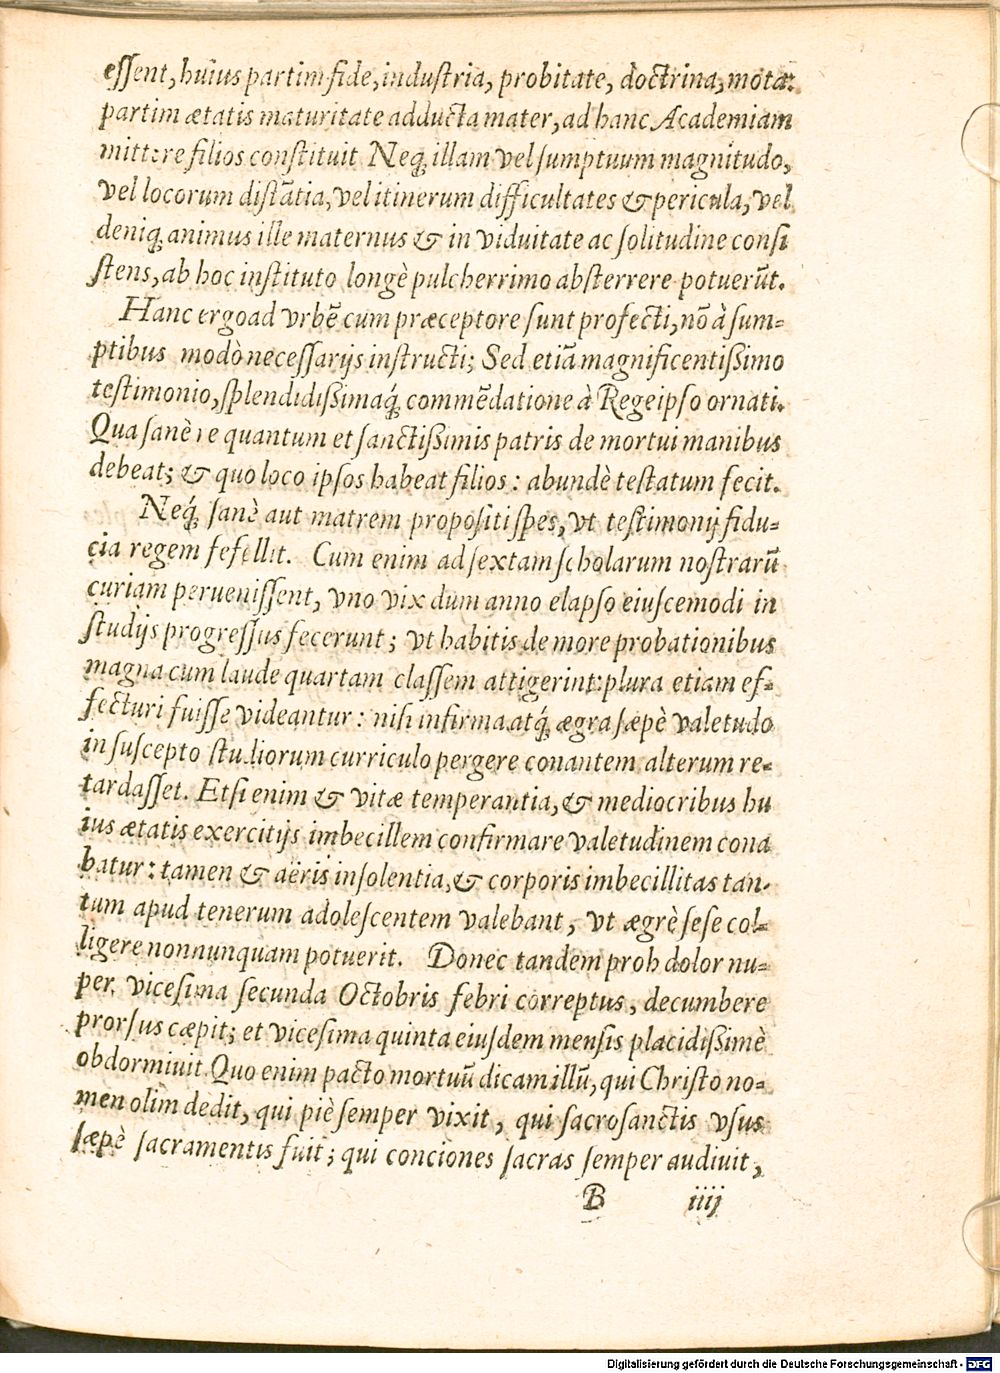 eſſent, huius partim fide, induſtria, probitate, doctrina, mota:
partim ætatis maturitate adducta mater, ad hanc Academiam
mittere filios conſtituit Neq́; illam vel ſumptuum magnitudo,
vel locorum diſtãtia, vel itinerum difficultates & pericula, vel
deniq́; animus ille maternus & in viduitate ac ſolitudine conſi
ſtens, ab hoc inſtituto longè pulcherrimo abſterrere potuerũt.
Hanc ergo ad vrbẽ cum præceptore ſunt profecti, nõ à ſum-
ptibus modò neceſſarijs inſtructi; Sed etiã magnificentiſsimo
teſtimonio, ſplendidiſsimaq́; commẽdatione à Rege ipſo ornati.
Qua ſanè re quantum et ſanctiſsimis patris demortui manibus
debeat; & quo loco ipſos habeat filios: abundè teſtatum fecit.
Neq́; ſanè aut matrem propoſiti ſpes, vt teſtimonij fidu-
cia regem fefellit. Cum enim ad ſextam ſcholarum noſtrarũ
curiam perueniſſent, vno vix dum anno elapſo eiuſcemodi in
ſtudijs progreſſus fecerunt; vt habitis de more probationibus
magna cum laude quartam claſſem attigerint: plura etiam ef-
fecturi fuiſſe videantur: niſi infirma atq́; ægra ſæpè valetudo
in ſuſcepto ſtudiorum curriculo pergere conantem alterum re-
tardaſſet. Etſi enim & vitæ temperantia, & mediocribus hu
ius ætatis exercitijs imbecillem confirmare valetudinem cona
batur: tamen & aëris inſolentia, & corporis imbecillitas tan-
tum apud tenerum adoleſcentem valebant, vt ægrè ſeſe col-
ligere nonnunquam potuerit. Donec tandem proh dolor nu-
per, viceſima ſecunda Octobris febri correptus, decumbere
prorſus cæpit; et viceſima quinta eiuſdem menſis placidiſsimè
obdormiuit. Quo enim pacto mortuũ dicam illũ, qui Chriſto no-
men olim dedit, qui piè ſemper vixit, qui ſacroſanctis vſus
ſæpè ſacramentis fuit; qui conciones ſacras ſemper audiuit,
B iiij
Digitalisierung gefördert durch die Deutsche Forschungsgemeinschaft - DFG